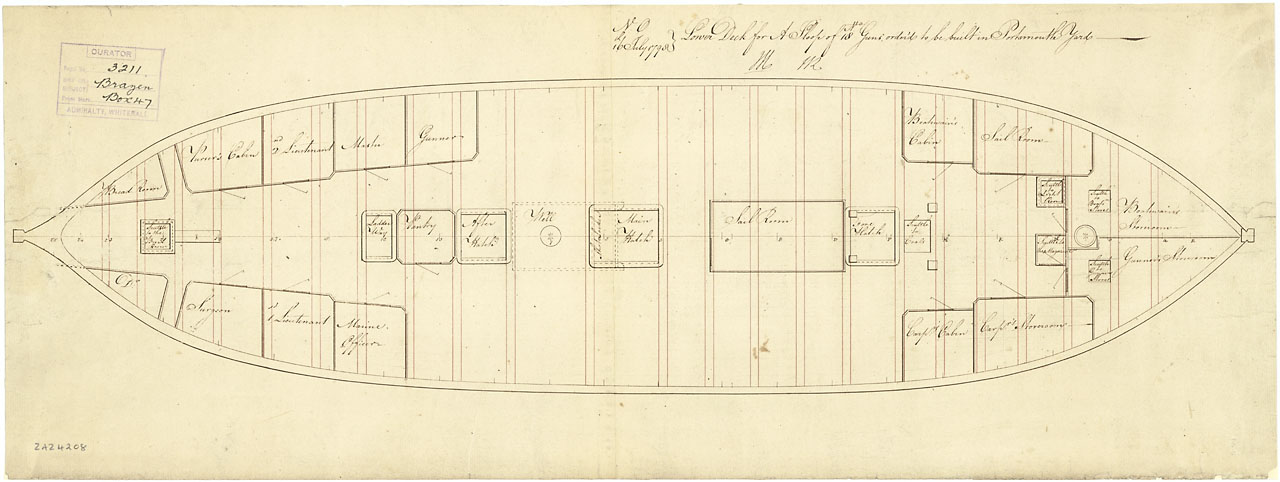 N.O.
16 July 1798
Lower Deck for A Sloop of 18 Guns, order'd to be built in Portsmouth Yard
CURATOR
3211
Brazen
Box 47
ADMIRALTY, WHITEHALL
Purser's Cabin
2nd Lieutenant
Master
Gunner
Boatswain's
Cabin
Sail Room
Bread Room
Ladder
Way
Pantry
After
Hatch
Well
Main
Hatch
Sail Room
Fore
Hitch
Scuttle
to
Coals
Boatswain's
Storeroom
Gunner's Storeroom
Do
Surgeon
1st Lieutenant
Marine
Officer
Carpr's Cabin
Carpr's Storeroom
ZAZ4208